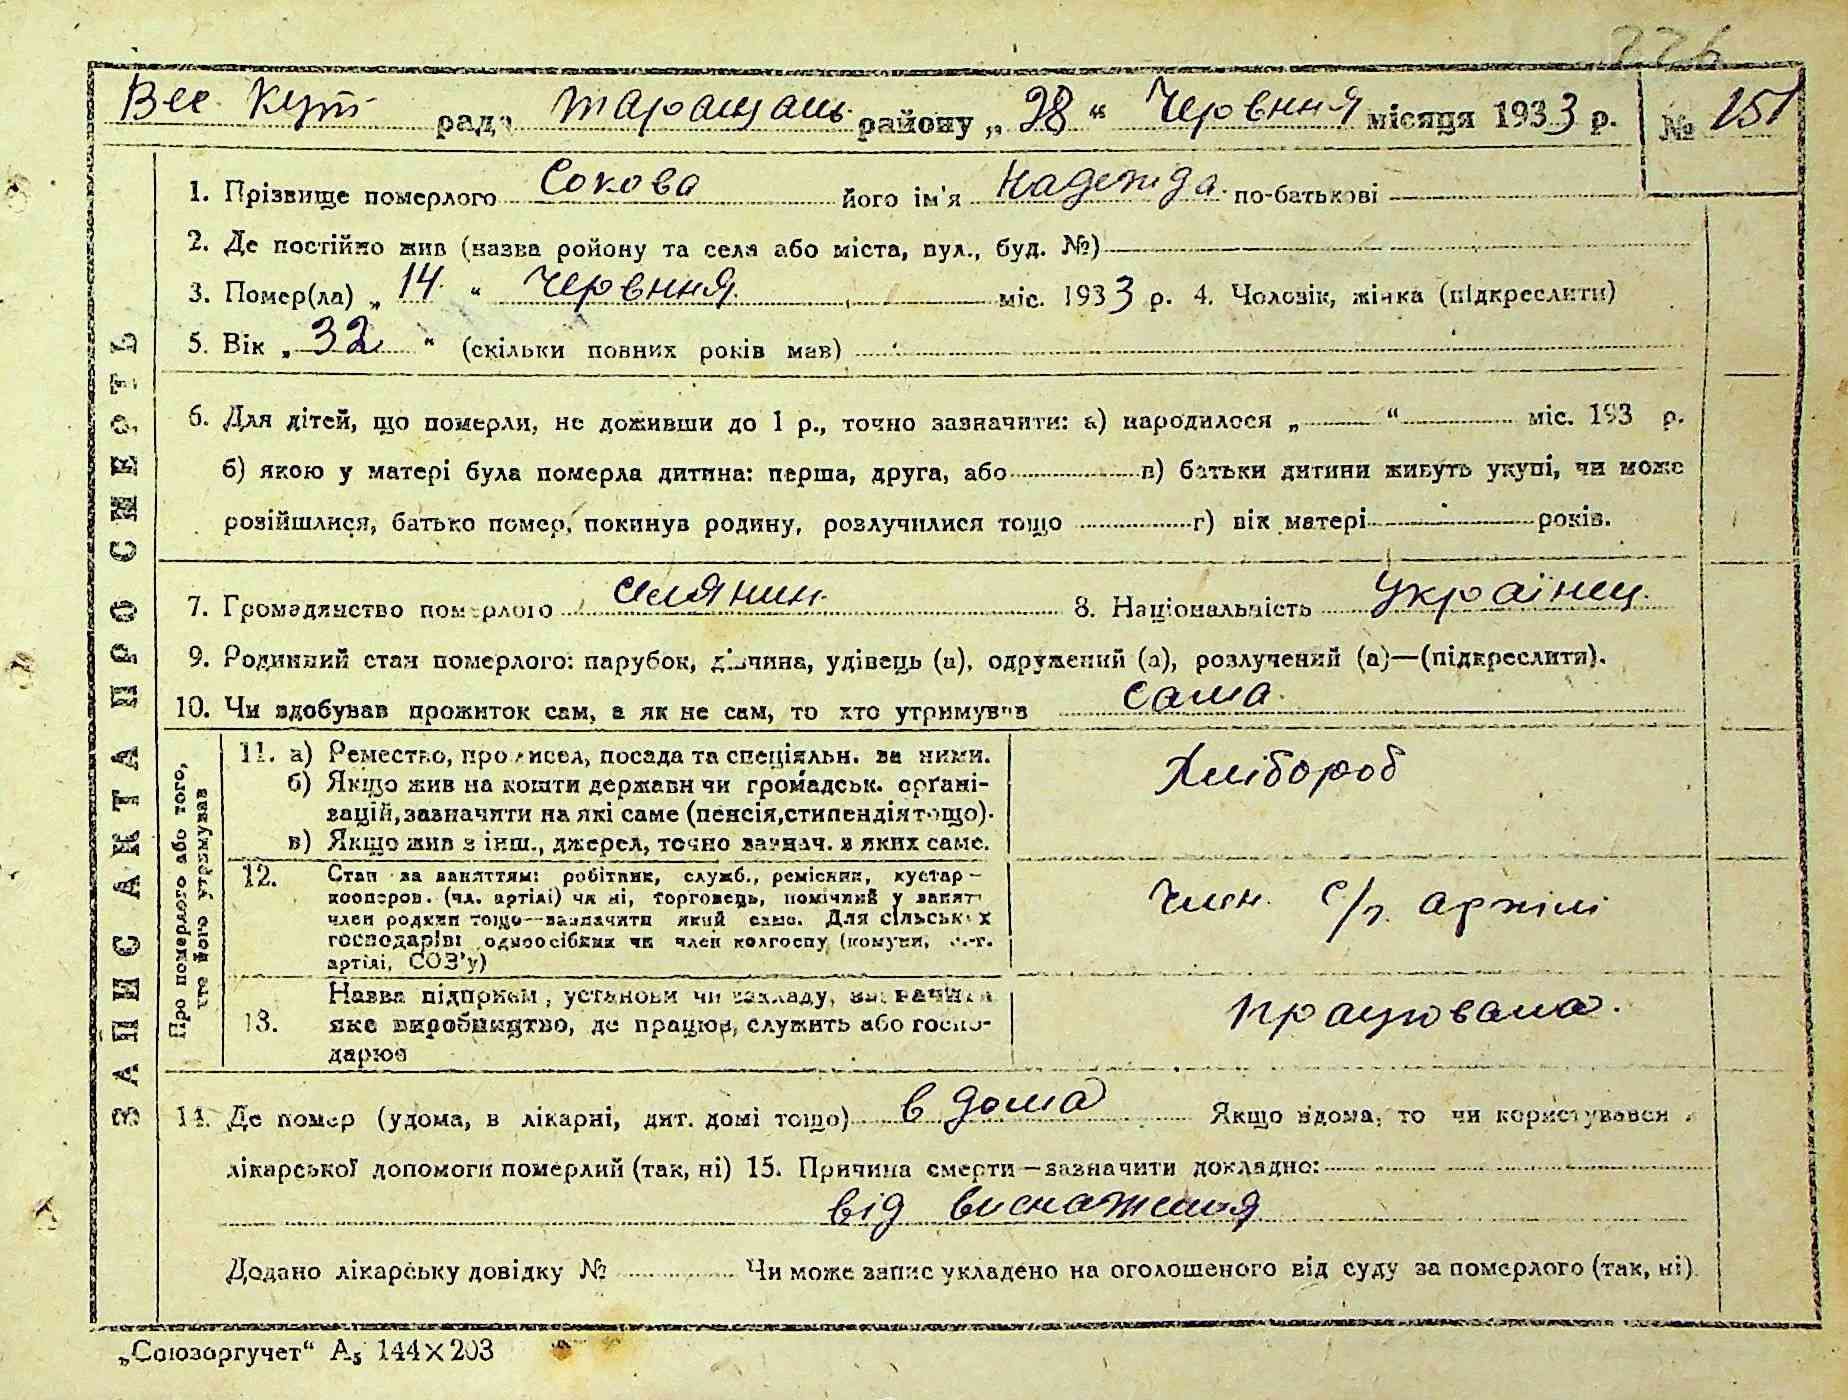 226
Вес. Кут рада Таращань району „ 28 “ Червння місяця 1933 р. № 151
1. Прізвище померлого Сокова його ім'я Надежда по-батькові
2. Де постійно жив (назва ройону та села або міста, вул., буд. №)
3. Помер(ла) „ 14 “ Червння міс. 1933 р. 4. Чоловік, жінка (підкреслити)
5. Вік „ 32 “ (скільки повних років мав)
6. Для дітей, що померли, не доживши до 1 р., точно зазначити: а) народилося „ “ міс. 193 р.
б) якою у матері була померла дитина: перша, друга, або в) батьки дитини живуть укупі, чи може
розійшлися, батько помер, покинув родину, розлучилися тощо г) вік матері років.
7. Громадянство померлого селянин 8. Національність українец
9. Родинний стан померлого: парубок, дівчина, удівець (а), одружений (а), розлучений (а)—(підкреслити).
10. Чи здобував прожиток сам, а як не сам, то хто утримував сама
ЗАПИС АКТА ПРО СМЕРТЬ
Про померлого або того, хто його утримував
11. а) Ремество, промисел, посада та спеціяльн. за ними. Хлібороб
б) Якщо жив на кошти держави чи громадськ. організацій, зазначити на які саме (пенсія, стипендія тощо).
в) Якщо жив з інш., джерел, точно зазнач. з яких саме.
12. Стан за заняттям: робітник, служб., ремісник, кустар—
кооперов. (чл. артілі) чи ні, торговець, помічний у занят.
член родини тощо—зазначити який саме. Для сільських
господарів: одноосібник чи член колгоспу (комуни, с.-г.
артілі, СОЗ'у)
Член. с/г. артілі
13. Назва підприєм., установи чи закладу, зазначити
яке виробництво, де працює, служить або господарює
працювала.
14. Де помер (удома, в лікарні, дит. домі тощо) в дома Якщо вдома, то чи користувався
лікарської допомоги померлий (так, ні) 15. Причина смерти—зазначити докладно:
від виснаження
Додано лікарську довідку № Чи може запис укладено на оголошеного від суду за померлого (так, ні).
„Союзоргучет“ А₅ 144×203